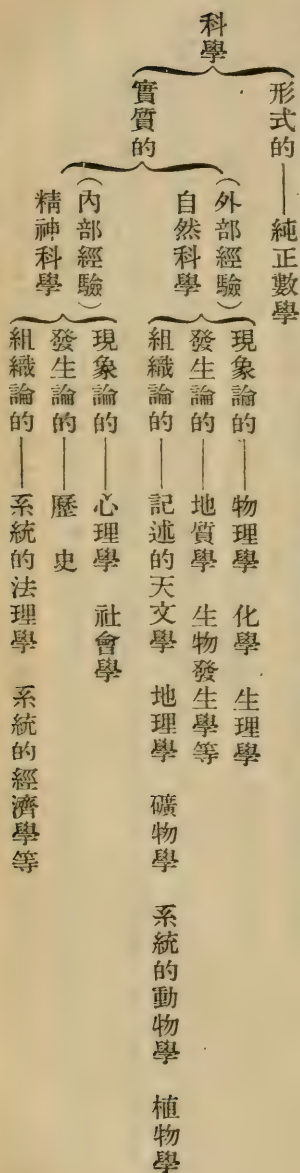 科學
形式的——純正數學
實質的
(外部經驗)
自然科學
現象論的——物理學　化學　生理學
發生論的——地質學　生物發生學等
組織論的——記述的天文學　地理學　礦物學　系統的動物學　植物學
(內部經驗)
精神科學
現象論的——心理學　社會學
發生論的——歷　史
組織論的——系統的法理學　系統的經濟學等